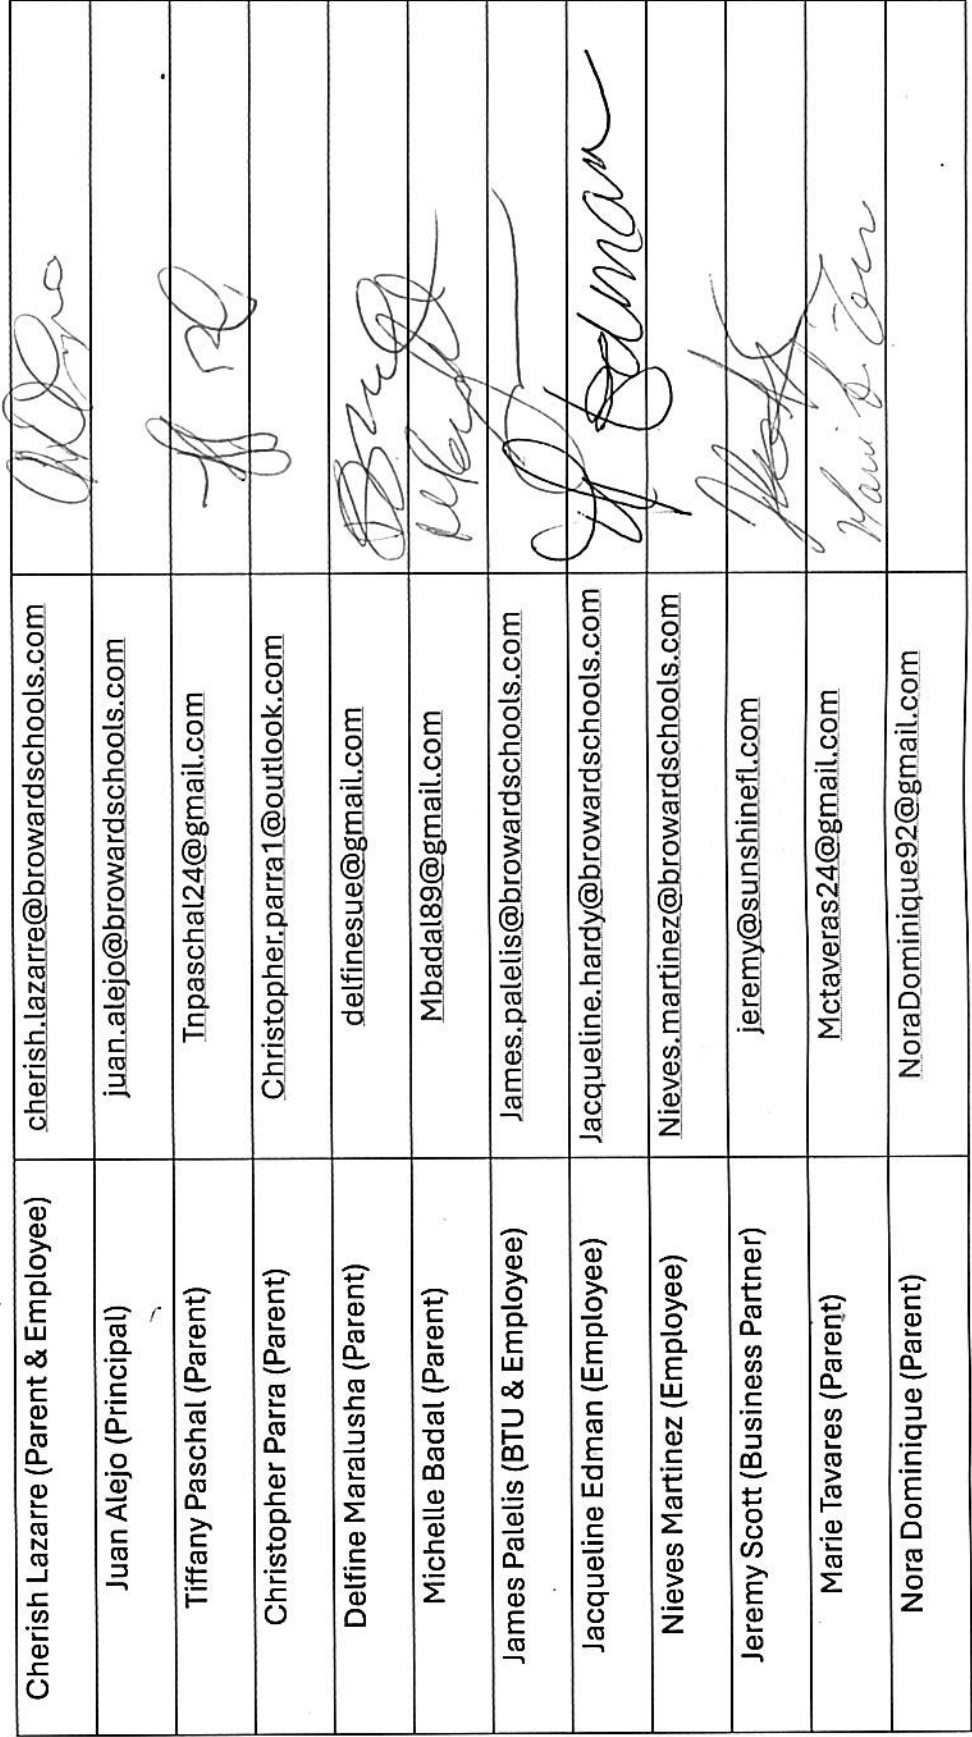 Cherish Lazarre (Parent & Employee) cherish.lazarre@browardschools.com
Juan Alejo (Principal) juan.alejo@browardschools.com
Tiffany Paschal (Parent) Tnpaschal24@gmail.com
Christopher Parra (Parent) Christopher.parra1@outlook.com
Delfine Maralusha (Parent) delfinesue@gmail.com
Michelle Badal (Parent) Mbadal89@gmail.com
James Palelis (BTU & Employee) James.palelis@browardschools.com
Jacqueline Edman (Employee) Jacqueline.hardy@browardschools.com Edman
Nieves Martinez (Employee) Nieves.martinez@browardschools.com
Jeremy Scott (Business Partner) jeremy@sunshinefl.com
Marie Tavares (Parent) Mctaveras24@gmail.com
Nora Dominique (Parent) NoraDominique92@gmail.com